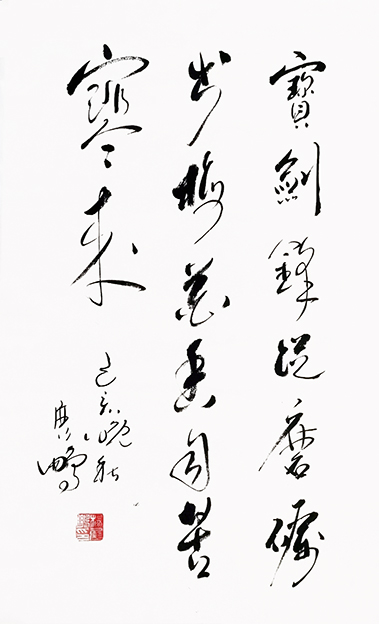 寶劍鋒從磨礪
出梅花香自苦
寒來
己亥晚秋
鵬